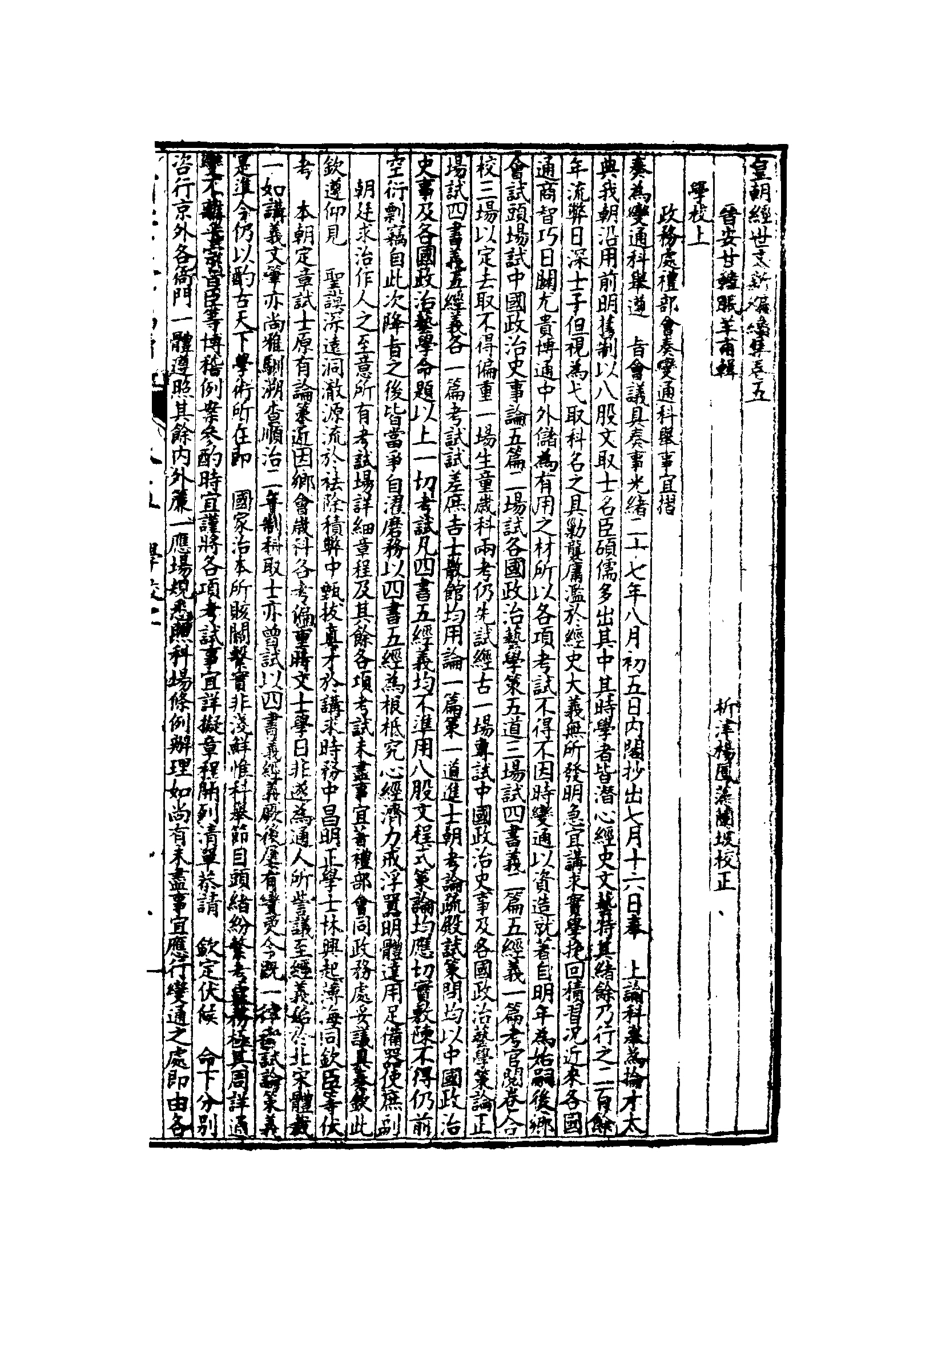 皇朝經世文新編續集卷五
晉安甘韓眠羊甫輯 析津楊鳳藻蘭坡校正
學校上
政務處禮部會奏變通科舉事宜摺
奏為變通科舉遵 旨會議具奏事光緒二十七年八月初五日內閣抄出七月十六日奉 上諭科舉為掄才大
典我朝沿用前明舊制以八股文取士名臣碩儒多出其中其時學者皆潛心經史文藝特其緒餘乃行之二百餘
年流弊日深士子但視為弋取科名之具勦襲庸濫於經史大義無所發明急宜講求實學挽回積習況近來各國
通商智巧日闢尤貴博通中外儲為有用之材所以各項考試不得不因時變通以資造就著自明年為始嗣後鄉
會試頭場試中國政治史事論五篇二場試各國政治藝學策五道三場試四書義二篇五經義一篇考官閱卷合
校三場以定去取不得偏重一場生童歲科兩考仍先試經古一場專試中國政治史事及各國政治藝學策論正
場試四書義五經義各一篇考試試差庶吉士散館均用論一篇策一道進士朝考論疏殿試策問均以中國政治
史事及各國政治藝學命題以上一切考試凡四書五經義均不準用八股文程式策論均應切實敷陳不得仍前
空衍剽竊自此次降旨之後皆當爭自濯磨務以四書五經為根柢究心經濟力戒浮囂明體達用足備器使庶副
朝廷求治作人之至意所有考試場詳細章程及其餘各項考試未盡事宜著禮部會同政務處妥議具奏欽此
欽遵仰見 聖謨深遠洞澈源流於袪除積弊中甄拔真才於講求時務中昌明正學士林興起溥海同欽臣等伏
考 本朝定章試士原有論策近因鄉會歲科各考偏重時文士學日非遂為通人所訾議至經義始於北宋體裁
一如講義文筆亦尚雅馴溯查順治二年制科取士亦曾試以四書義經義厥後屢有變更今既一律改試論策義
是準今仍以酌古天下學術所在即 國家治本所賅關繫實非淺鮮惟科舉節目頭緒紛繁考覈務極其周詳通
變不離乎宗旨臣等博稽例案參酌時宜謹將各項考試事宜詳擬章程臚列清單恭請 欽定伏候 命下分別
咨行京外各衙門一體遵照其餘內外簾一應場規悉照科場條例辦理如尚有未盡事宜應行變通之處即由各